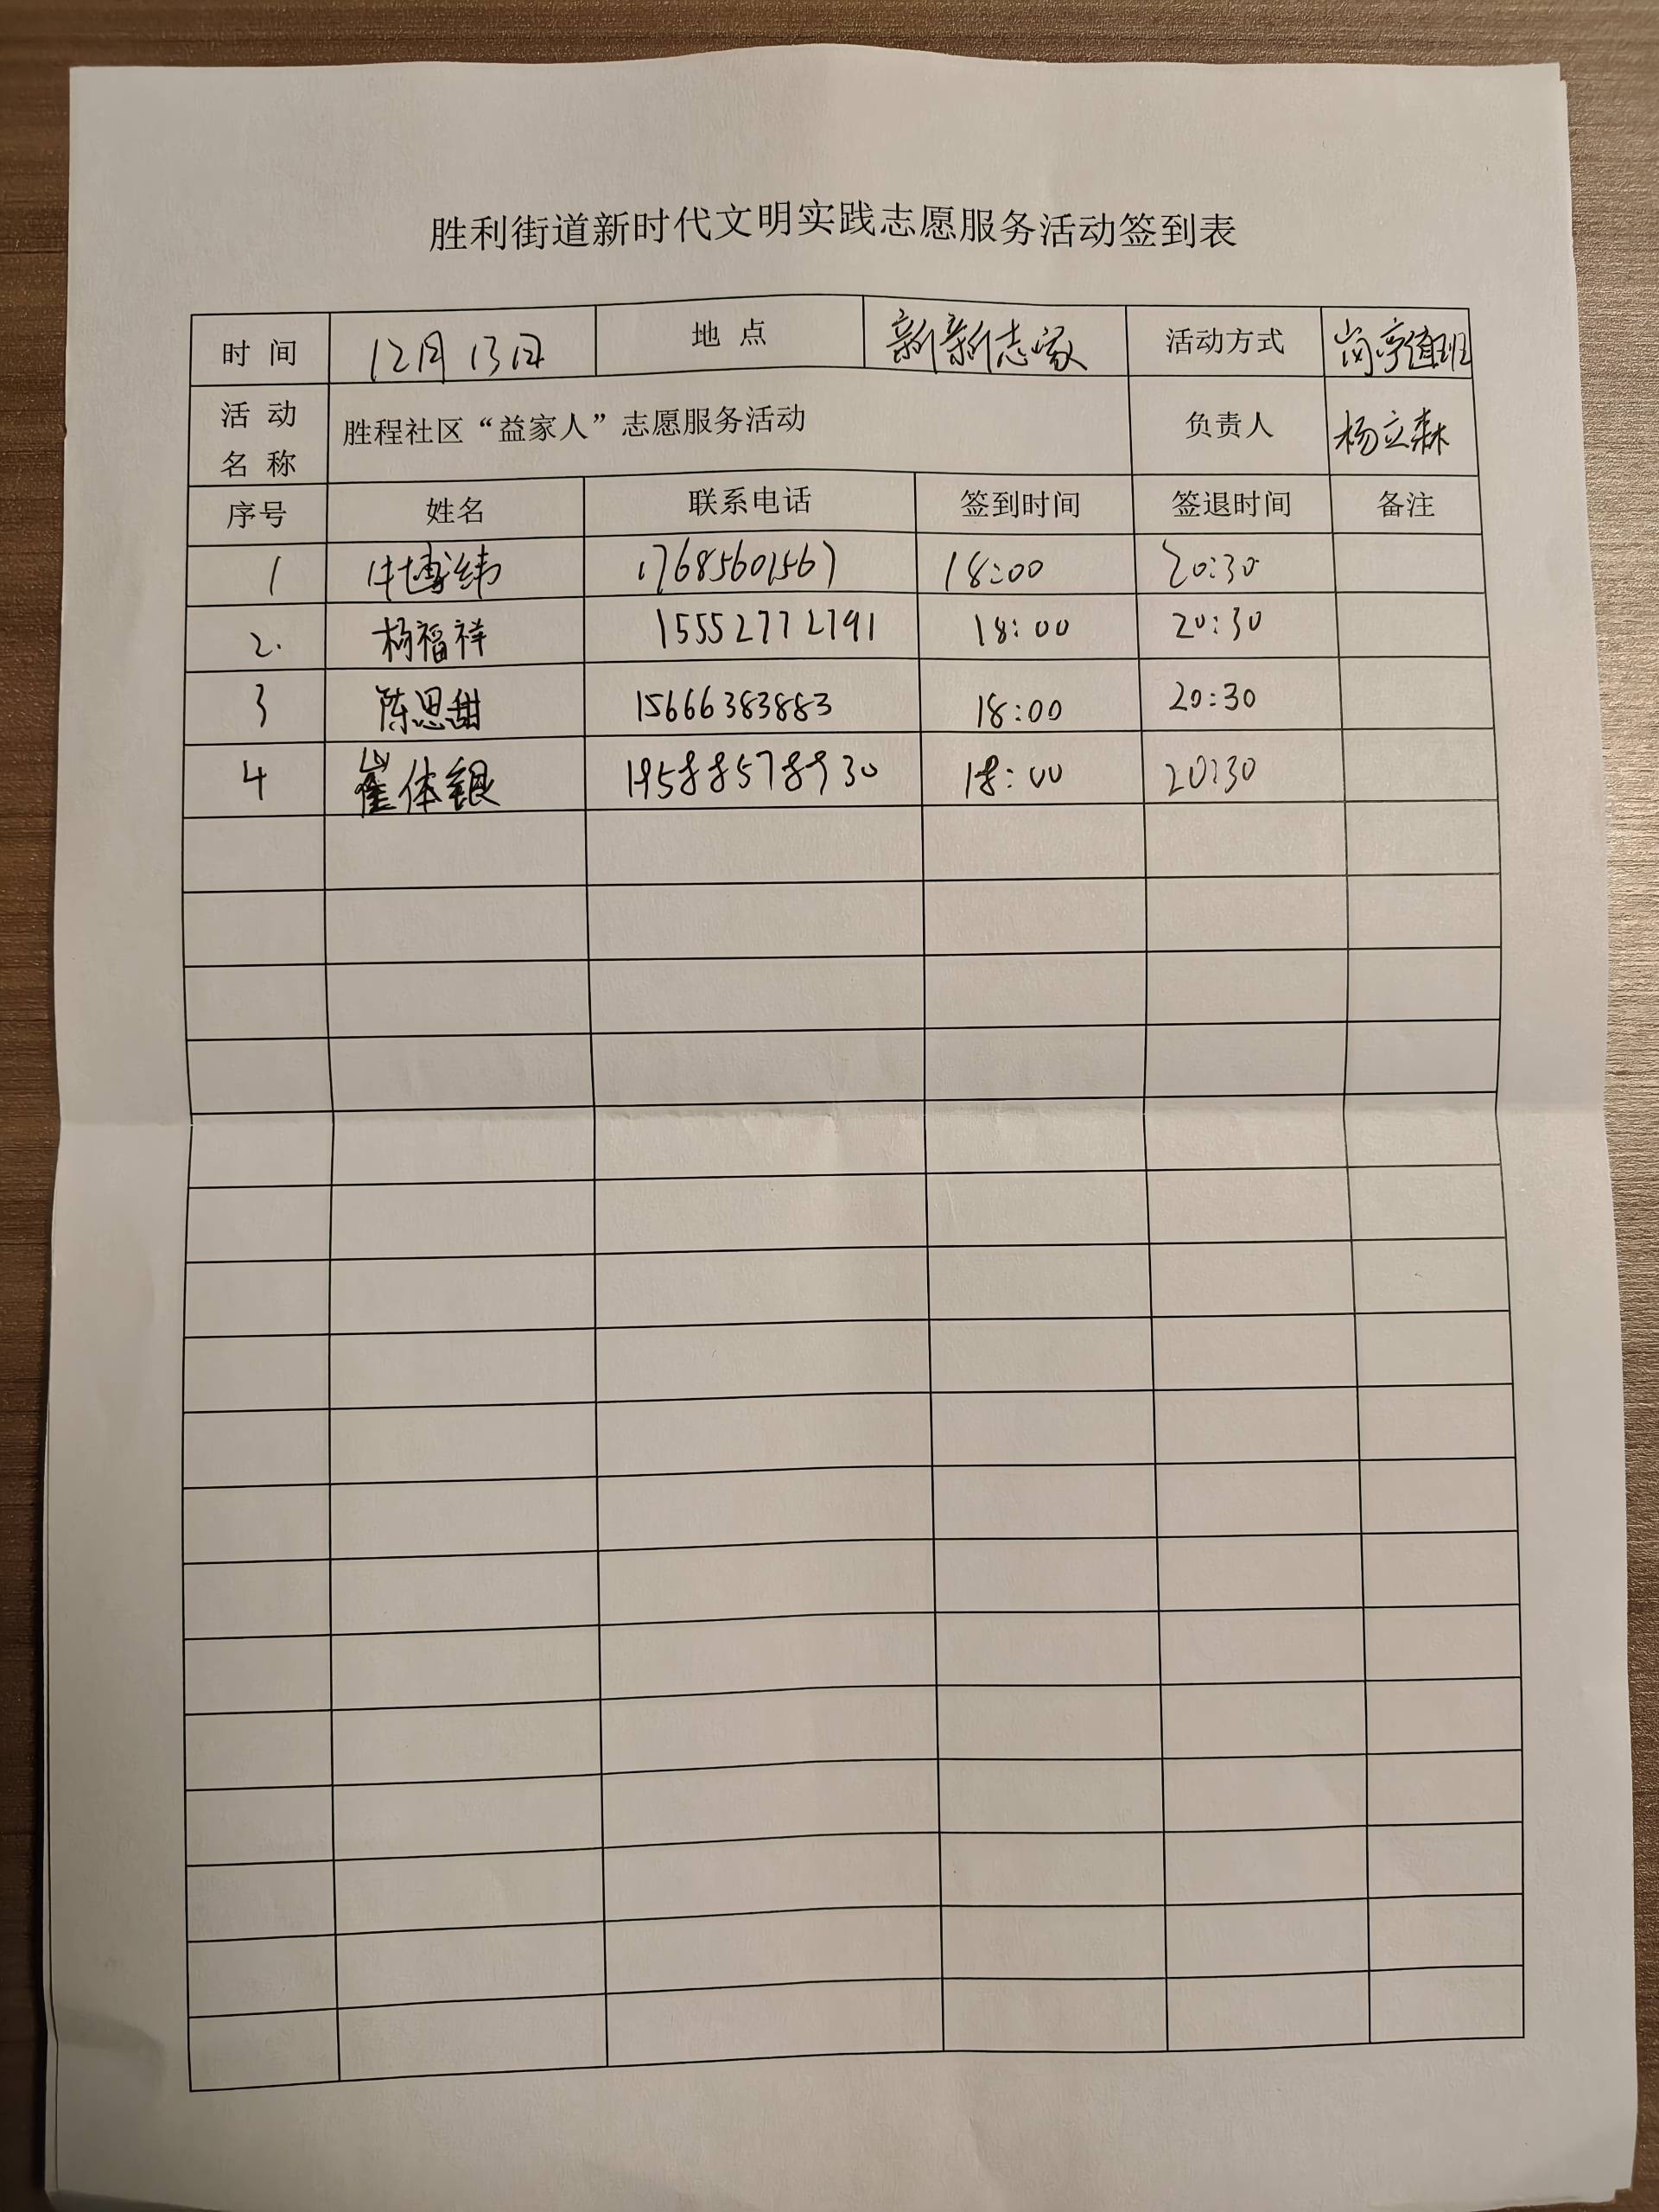 胜利街道新时代文明实践志愿服务活动签到表
时 间 12月13日 地 点 新新志家 活动方式 岗亭值班
活 动 名 称 胜程社区“益家人”志愿服务活动 负责人 杨立森
序号 姓名 联系电话 签到时间 签退时间 备注
1 牛博纬 17685601567 18:00 20:30
2. 杨福祥 15552772791 18:00 20:30
3 陈思甜 15666383883 18:00 20:30
4 崔体银 19588578930 18:00 20:30